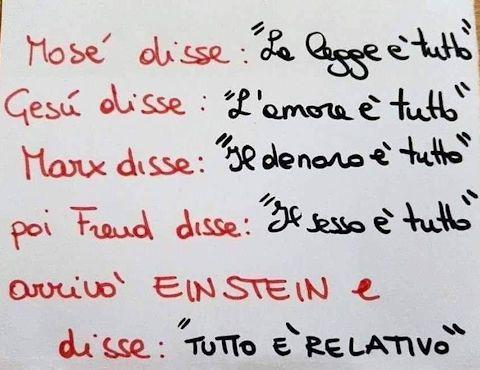 Mosé disse: "La legge è tutto"
Gesú disse: "L'amore è tutto"
Marx disse: "Il denaro è tutto"
poi Freud disse: "Il sesso è tutto"
arrivò EINSTEIN e
disse: "TUTTO È RELATIVO"